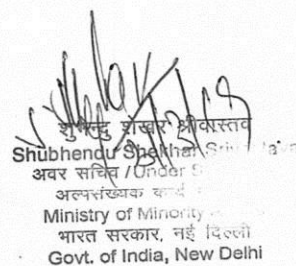 शुभेन्दु शेखर श्रीवास्तव
Shubhendu Shekhar
अवर सचिव / Under S
अल्पसंख्यक कार्य
Ministry of Minority
भारत सरकार, नई दिल्ली
Govt. of India, New Delhi